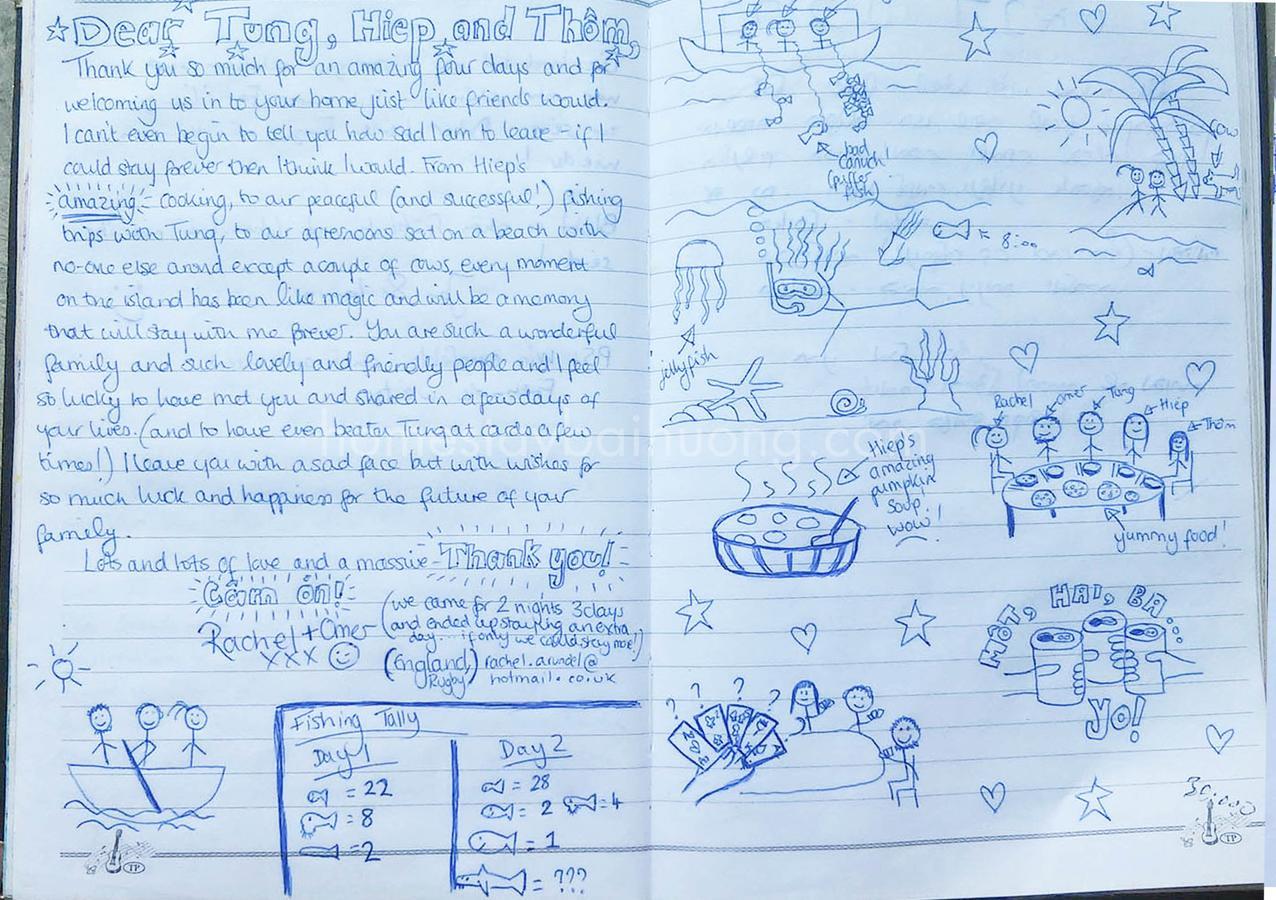 Dear Tung, Hiep and Thôm,
Thank you so much for an amazing four days and for
welcoming us in to your home just like friends would.
I can't even begin to tell you how sad I am to leave - if I
could stay forever then I think I would. From Hiep's
amazing cooking, to our peaceful (and successful!) fishing
trips with Tung, to our afternoons sat on a beach with
no-one else around except a couple of cows, every moment
on the island has been like magic and will be a memory
that will stay with me forever. You are such a wonderful
family and such lovely and friendly people and I feel
so lucky to have met you and shared in a few days of
your lives. (and to have even beaten Tung at cards a few
times!) I leave you with a sad face but with wishes for
so much luck and happiness for the future of your
family.
Lots and lots of love and a massive Thank you!
Cảm ơn!
Rachel + Omer
xxx
(we came for 2 nights 3 days
and ended up staying an extra
day... if only we could stay more!)
(England, Rugby)
rachel.arundel@
hotmail.co.uk
Fishing Tally
Day 1
= 22
= 8
= 2
Day 2
= 28
= 2 = 4
= 1
= ???
bad
canuch!
(puffer
fish)
cow
jellyfish
Rachel
Omer
Tung
Hiep
Thôm
yummy food!
Hiep's
amazing
pumpkin
soup!
wow!
MỘT, HAI, BA...
YO!
? ? ? ? ?
30,000
TP
TP
homestaybaihuong.com